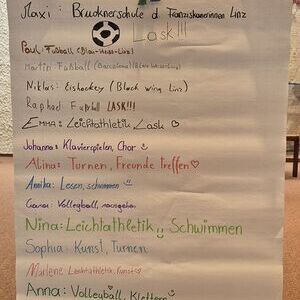 Maxi: Brucknerschule d Franziskanerinnen Linz
Lask!!!
Paul: Fußball (Blau-Weiss-Linz)
Martin Fußball (Barcelona)
Niklas: Eishockey (Black wing Linz)
Raphael Fußball LASK!!!
EMMA: Leichtathletik, Lask ♡
Johanna: Klavierspielen, Chor
Alina: Turnen, Freunde treffen ♡
Annika: Lesen, schwimmen
Volleyball,
Nina: Leichtathletik Schwimmen
Sophia: Kunst, Turnen
Marlene Leichtathletik, Kunst
Anna: Volleyball, Klettern